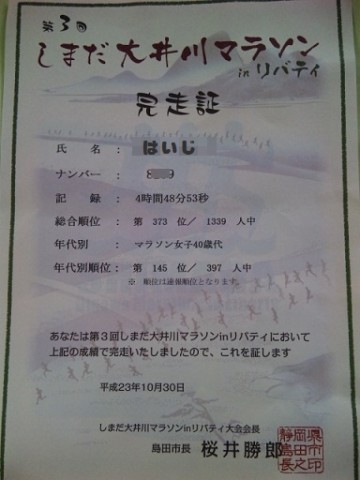 第3回
しまだ大井川マラソン
inリバティ
完走証
氏 名 : はいじ
ナンバー :
記 録 : 4時間48分53秒
総合順位 : 第 373 位/ 1339 人中
年代別 : マラソン女子40歳代
年代別順位: 第 145 位/ 397 人中
※ 順位は速報順位となります。
あなたは第3回しまだ大井川マラソンinリバティにおいて
上記の成績で完走いたしましたので、これを証します
平成23年10月30日
しまだ大井川マラソンinリバティ大会会長
島田市長 桜井勝郎